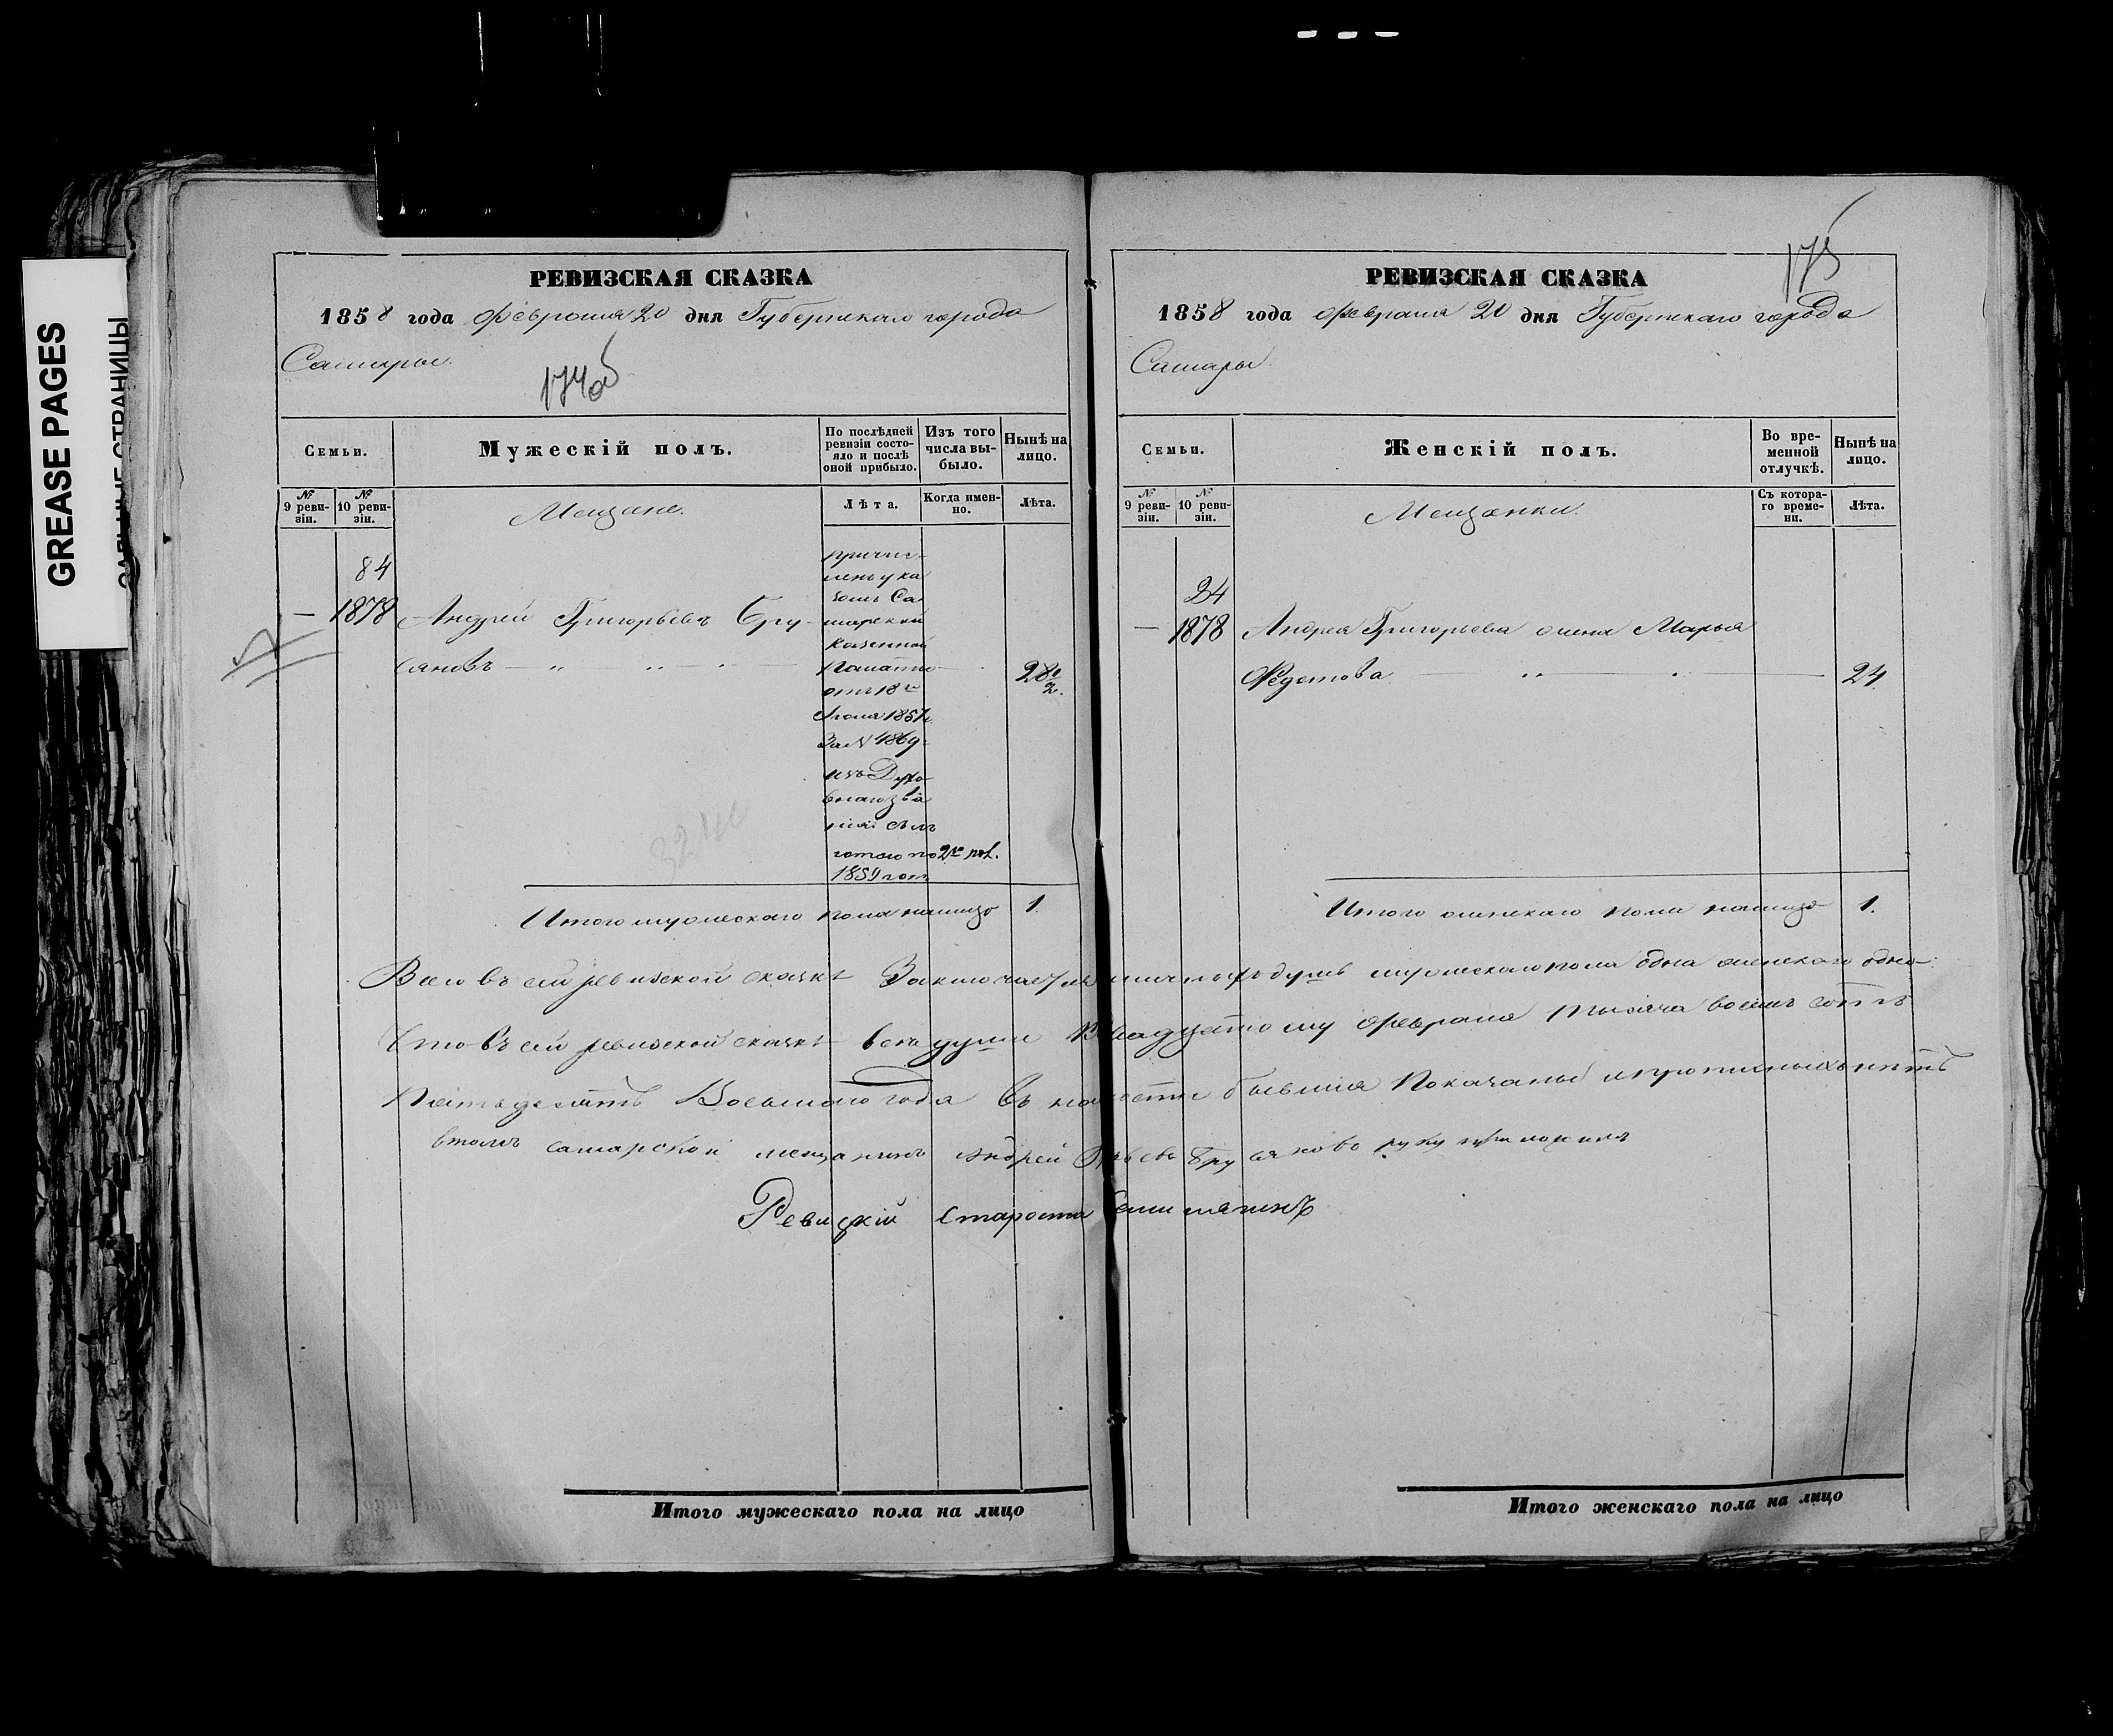 GREASE PAGES
РЕВИЗСКАЯ СКАЗКА
1858 года Февраля 20 дня Губернскаго города
Самары.
174об
Семьи.
Мужескій полъ.
По послѣдней ревизіи состояло и послѣ оной прибыло.
Изъ того числа выбыло.
Нынѣ на лицо.
№ 9 ревизіи.
№ 10 ревизіи.
Мещане.
Лѣта.
Когда именно.
Лѣта.
84
— 1878 Андрей Григорьевъ Бру-
сяновъ
причис-
ленъ ука
зомъ Са
марской
Казенной
Палаты
отъ 18го
1857г.
За № 4869
изъ Духо
внаго зва
нія съ льготою по 2ю пол.
1859 года
Итого мужескаго пола налицо 1.
РЕВИЗСКАЯ СКАЗКА
175
1858 года Февраля 20 дня Губернскаго города
Самары.
Семьи.
Женскій полъ.
Во временной отлучкѣ.
Нынѣ на лицо.
№ 9 ревизіи.
№ 10 ревизіи.
Мещанки.
Съ котораго времени.
Лѣта.
84
— 1878 Андрея Григорьева жена Марья
Федотова 24
Итого женскаго пола налицо 1.
Всего въ сей ревизской сказкѣ заключается душъ мужескаго пола одна женскаго одна
Что въ сей ревизской сказкѣ всѣ души къ двадцатому февраля тысяча восемь сотъ
пятьдесятъ восьмаго года въ налич­ности бывшия показаны и прописныхъ нѣтъ
втомъ самарской мещанинъ Андрей Брусяновъ руку приложилъ
Ревизскій староста
Итого мужескаго пола на лицо
Итого женскаго пола на лицо